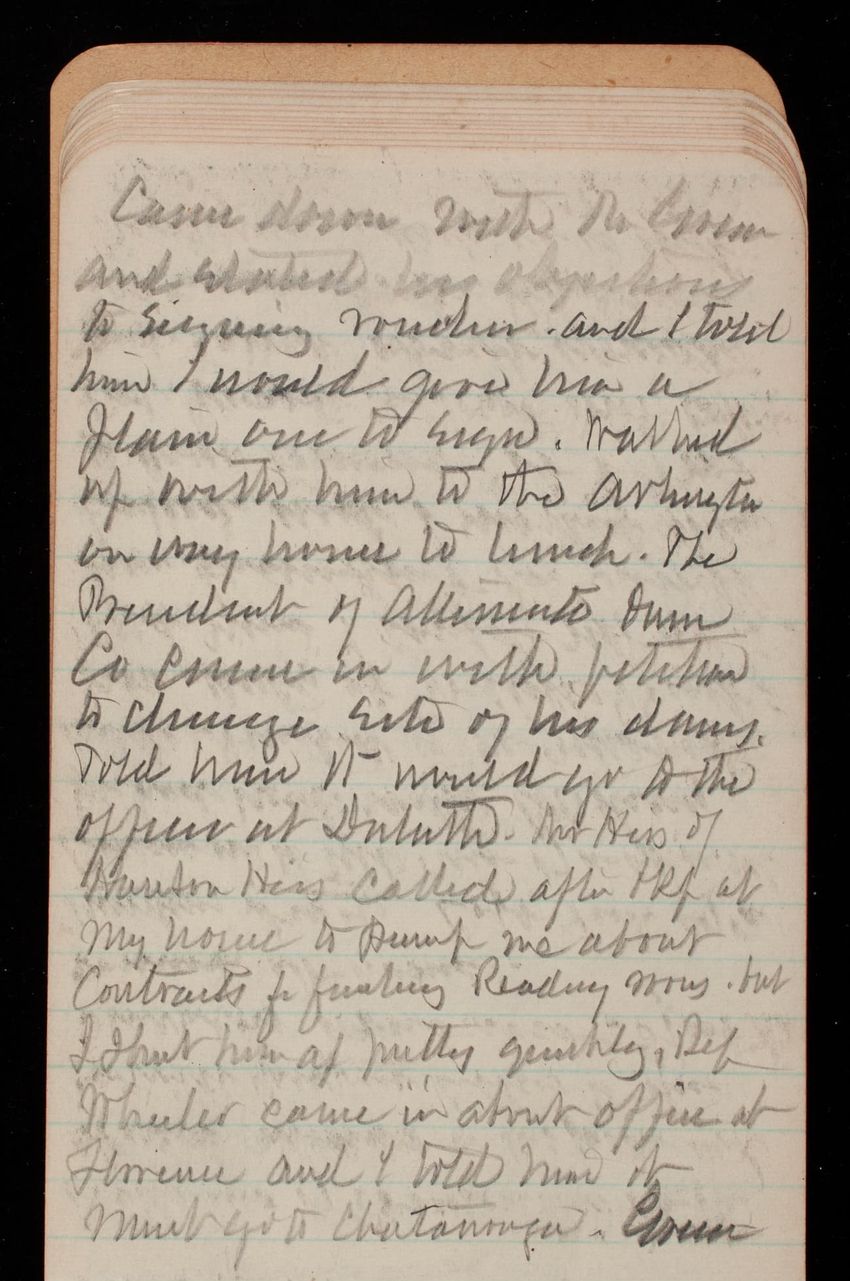 Came down with Mr Green
and stated his objections
to signing voucher. and I told
him I would give him a
plain one to sign. Walked
up with him to the Arlington
on way home to lunch. The
President of Altemonte Dam
Co came in with petition
to change site of his dams.
Told him it would go to the
officer at Duluth. Mr Hiss of
Hiss called after at
my house to pump me about
Contracts for finishing Reading rooms. but
I shut him up pretty quickly. Rep
Wheeler came in about office at
Florence and I told him it
must go to Chatanooga. Green